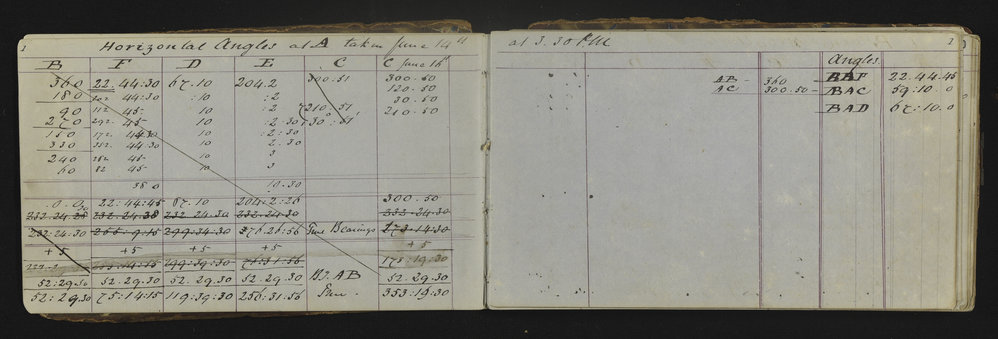 1 Horizontal Angles at A taken June 14th
B F D E C C June 16th
360 22:44:30 67.10 204.2 300.51 300.50
180 44:30 :10 :2 120.50
90 112 45- 10 :2 210.51 30.50
270 292 45- 10 :2:30 30°:51' 210.50
150 172 44:30 10 :2:30
330 352 44:30 10 2.30
240 262 45- 10 3
60 82 45- 10 3
38 0 10.30
0.0 22:44:45 67.10 204.2:26 300.50
232.24.28 232.24.28 232.24.30 232.24.30 232-24.30
232:24.30 255:9:15 299:34:30 276:26:56 True Bearings 173-14:30
+5 +5 +5 +5
199:39:30 76:31:56 173:19:30
52:29.30 52.29.30 52.29.30 52.29.30 AB 52.29.30
52:29.30 75:14:15 119:39:30 256:31:56 True. 353:19:30
at 3.30 P.M 2
Angles
AB - 360 BAF 22.44.45
AC 300.50 - BAC 59:10.0
BAD 67:10.0